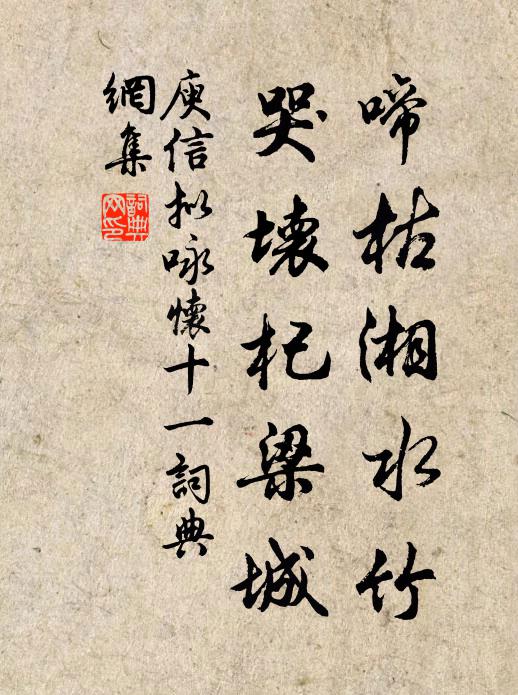 啼枯湘水竹
哭壞杞梁城
庾信拟咏懷十一詞典
網集
詞典网印